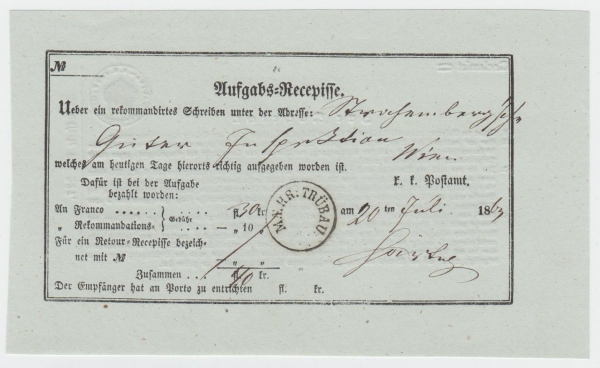 №
Aufgabs-Recepisse.
Ueber ein rekommandirtes Schreiben unter der Adresse:
Güter Inspektion
Wien
welches am heutigen Tage hierorts richtig aufgegeben worden ist.
Dafür ist bei der Aufgabe bezahlt worden:
k. k. Postamt.
An Franco . . . . . . fl. 30 kr.
„ Rekommandations- Gebühr . . . . — „ 10 „
MÆHR: TRÜBAU
am 20 ten Juli 186
Für ein Retour-Recepisse bezeich-
net mit № „ „
Zusammen . . . . . fl. kr.
Der Empfänger hat an Porto zu entrichten fl. kr.